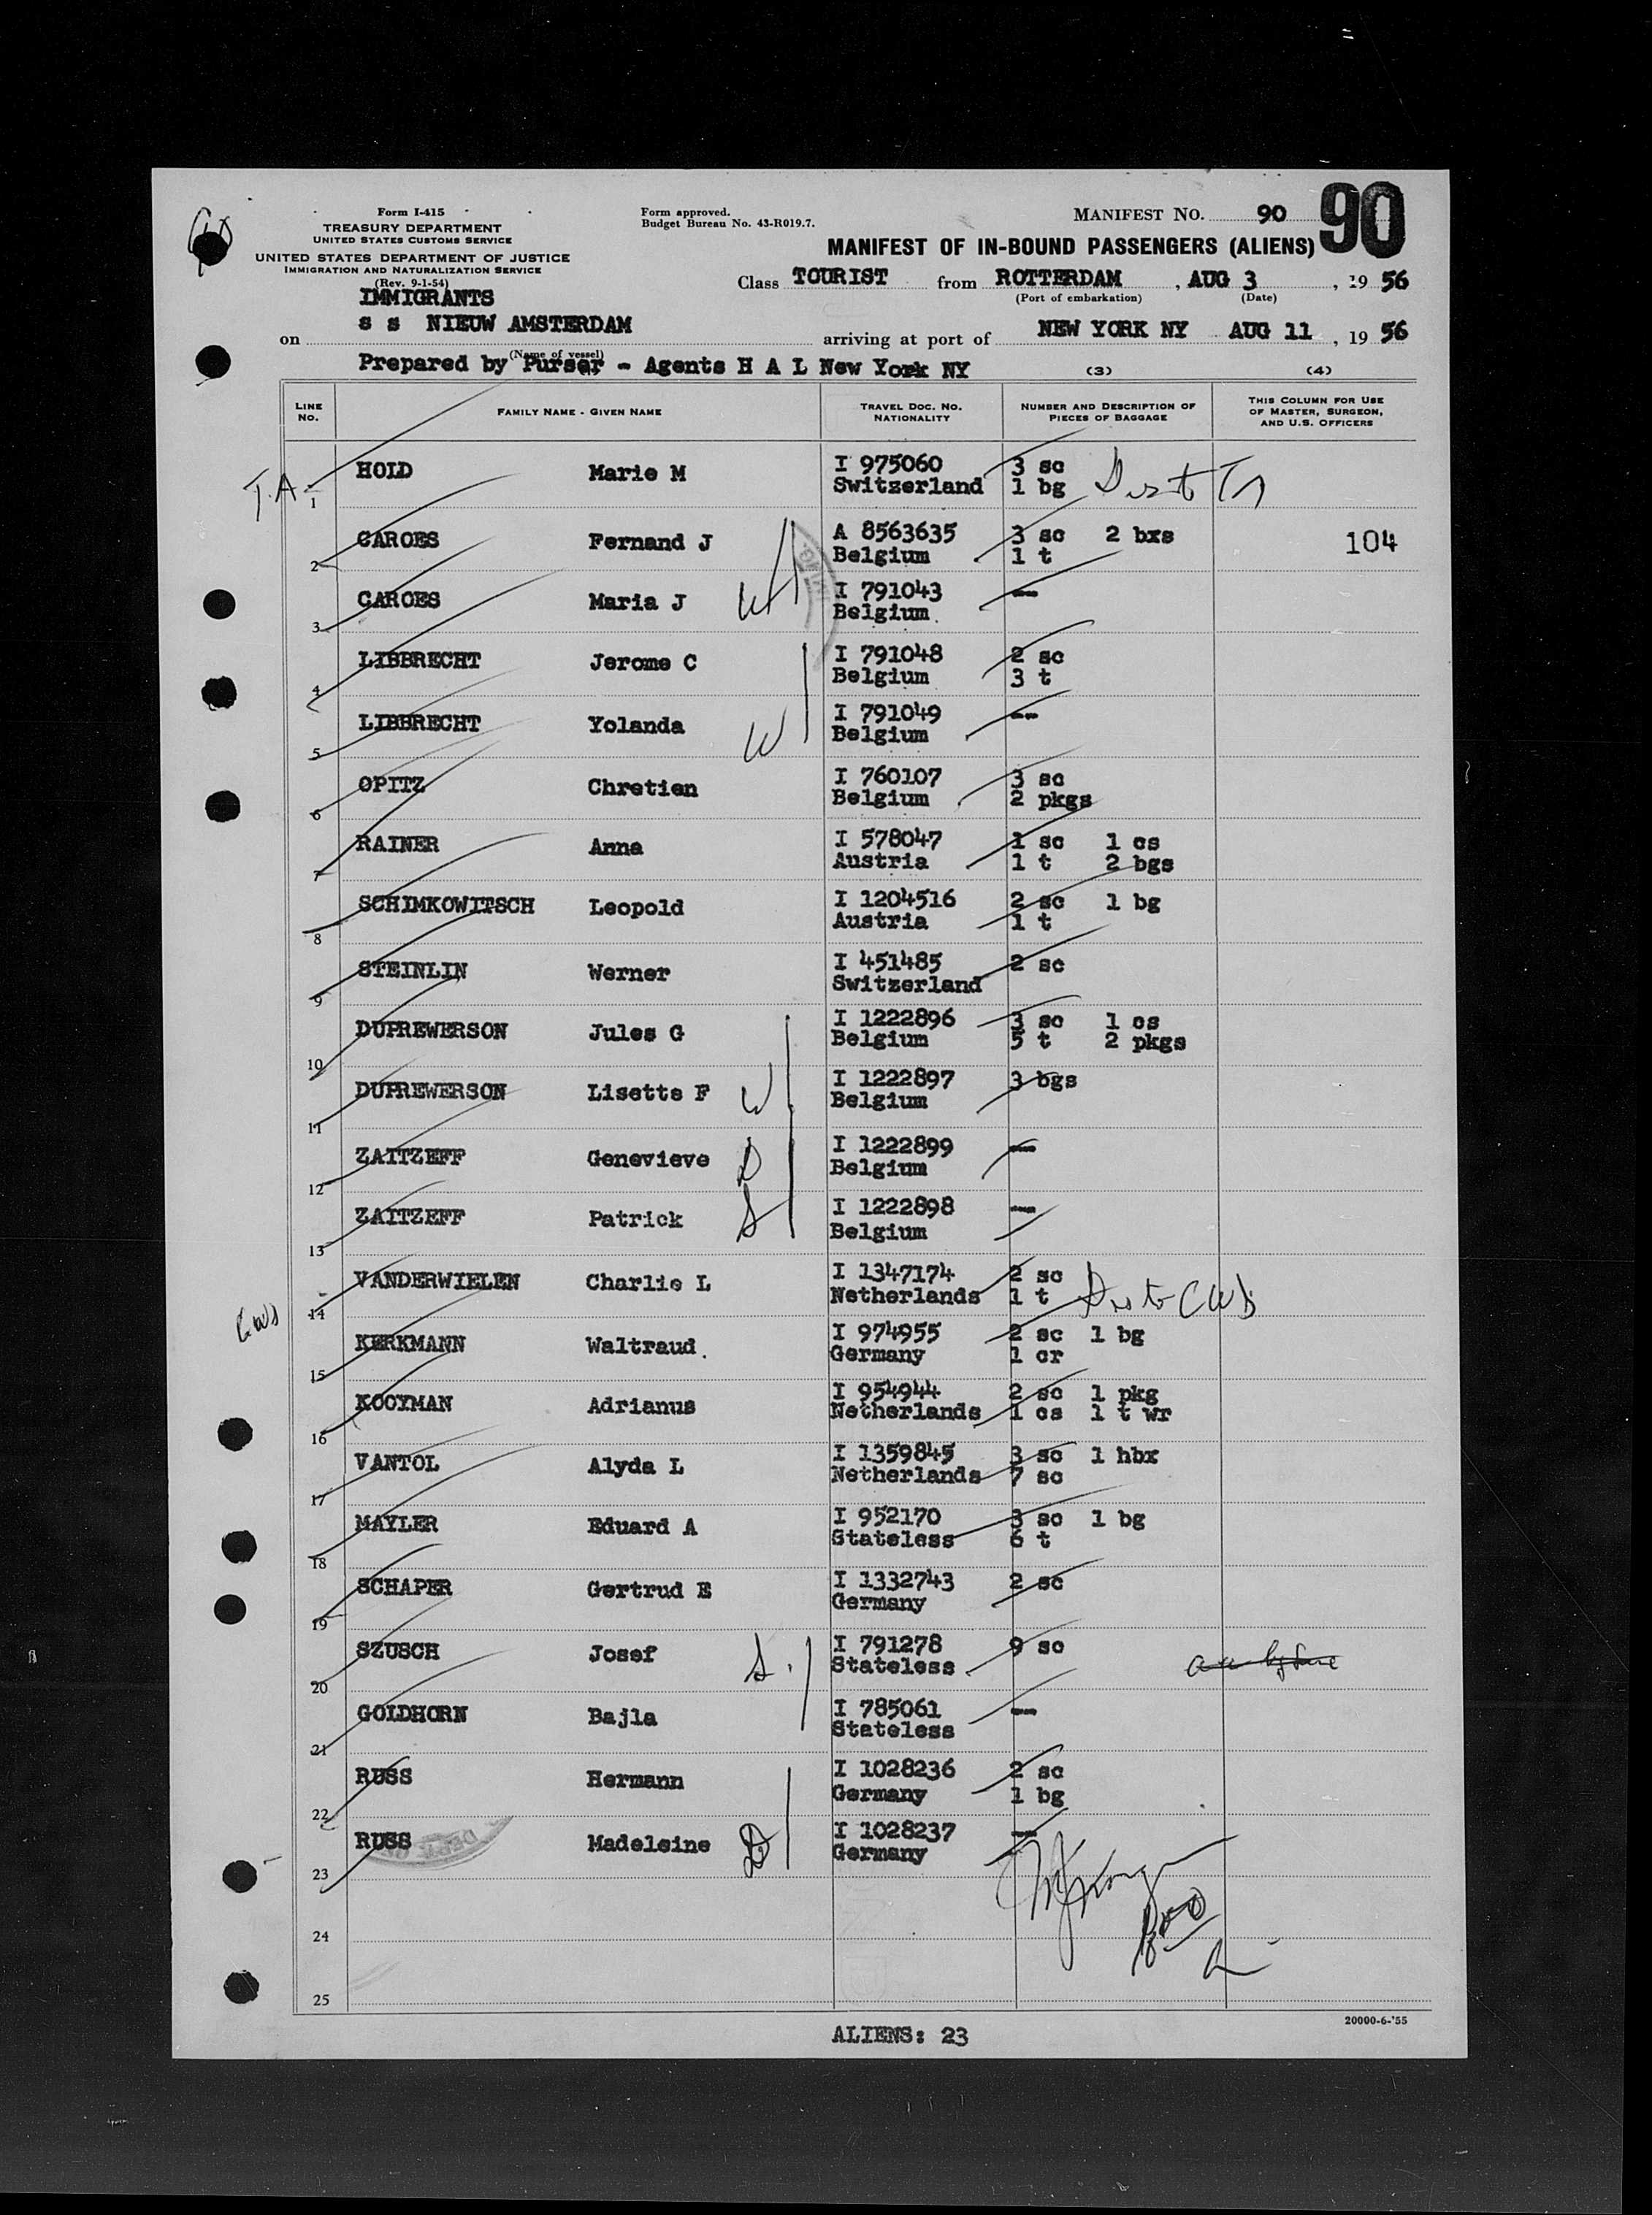 Form I-415
TREASURY DEPARTMENT
UNITED STATES CUSTOMS SERVICE
UNITED STATES DEPARTMENT OF JUSTICE
IMMIGRATION AND NATURALIZATION SERVICE
(Rev. 9-1-54)
Form approved.
Budget Bureau No. 43-R019.7.
MANIFEST NO. 90
90
MANIFEST OF IN-BOUND PASSENGERS (ALIENS)
Class TOURIST from ROTTERDAM, AUG 3, 19 56
(Port of embarkation) (Date)
IMMIGRANTS
on s s NIEUW AMSTERDAM arriving at port of NEW YORK NY AUG 11, 19 56
(Name of vessel)
Prepared by Purser - Agents H A L New York NY
(3) (4)
LINE NO. FAMILY NAME - GIVEN NAME TRAVEL DOC. NO. NATIONALITY NUMBER AND DESCRIPTION OF PIECES OF BAGGAGE THIS COLUMN FOR USE OF MASTER, SURGEON, AND U.S. OFFICERS
T.A. 1 HOLD Marie M I 975060 3 sc
Switzerland 1 bg
2 CAROES Fernand J A 8563635 3 sc 2 bxs 104
Belgium 1 t
3 CAROES Maria J W I 791043 --
Belgium
4 LIBBRECHT Jerome C I 791048 2 sc
Belgium 3 t
5 LIBBRECHT Yolanda W I 791049 --
Belgium
6 OPITZ Chretien I 760107 3 sc
Belgium 2 pkgs
7 RAINER Anna I 578047 1 sc 1 cs
Austria 1 t 2 bgs
8 SCHIMKOWITSCH Leopold I 1204516 2 sc 1 bg
Austria 1 t
9 STEINLIN Werner I 451485 2 sc
Switzerland
10 DUPREWERSON Jules G I 1222896 3 sc 1 cs
Belgium 5 t 2 pkgs
11 DUPREWERSON Lisette F W I 1222897 3 bgs
Belgium
12 ZAITZEFF Genevieve D I 1222899 --
Belgium
13 ZAITZEFF Patrick S I 1222898 --
Belgium
14 VANDERWIELEN Charlie L I 1347174 2 sc
Netherlands 1 t
15 KERKMANN Waltraud. I 974955 2 sc 1 bg
Germany 1 cr
16 KOOYMAN Adrianus I 954944 2 sc 1 pkg
Netherlands 1 cs 1 t wr
17 VANTOL Alyda L I 1359845 3 sc 1 hbx
Netherlands 7 sc
18 MAYLER Eduard A I 952170 3 sc 1 bg
Stateless 6 t
19 SCHAPER Gertrud E I 1332743 2 sc
Germany
20 SZUSCH Josef S. I 791278 9 sc
Stateless
21 GOLDHORN Bajla I 785061 --
Stateless
22 RUSS Hermann I 1028236 2 sc
Germany 1 bg
23 RUSS Madeleine D I 1028237 --
Germany
24
25
20000-6-'55
ALIENS: 23